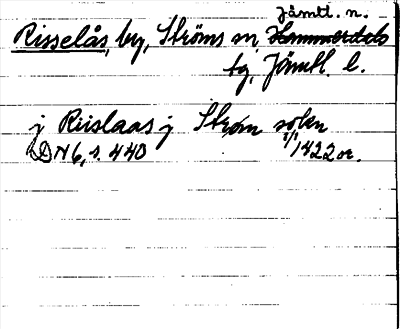 Jämtl. n.
Risselås, by, Ströms sn, Hammerdals
tg, Jämtl. l.
j Riislaas j Strøm sokn
DN 6, s. 440 1/1 1422 or.